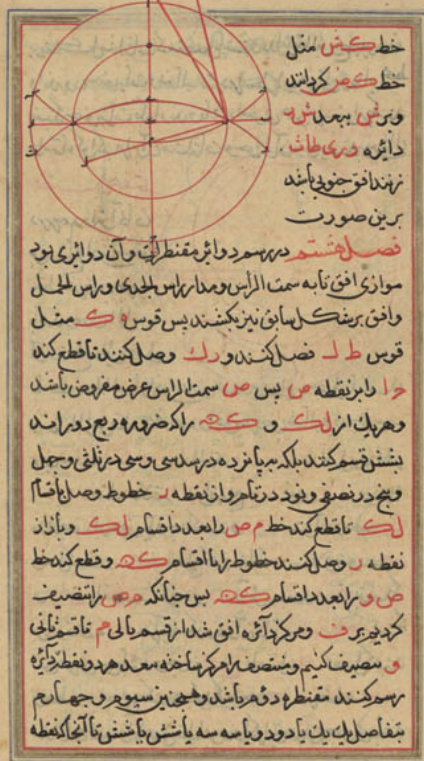 خط کش مثل
خط کص کردانند
وبر ش ببعد ش ه
دائره ه ری طاث
زنند افق جنوبی باشد
برین صورت
فصل هشتم در رسم دوائر مقنطرات وآن دوائری بود
موازی افق تا به سمت الراس ومدار راس الجدی وراس الحمل
وافق بر شکل سابق نیز بکشند پس قوس ه ک مثل
قوس ط ل فصل کنند و ر ک وصل کنند تا قطع کند
ح ا را بر نقطه ص پس ص سمت الراس عرض مفروض باشد
وهریک از ل ک و ک ه را که ضروره ربع دور اند
بشش قسم کنند بلکه بر پانزده در سدسی وسی در ثلثی وچهل
وپنج در نصفی ونود در تام واز نقطه ر خطوط وصل باقسام
ل ک تا قطع کند خط م ص را بعدد اقسام ل ک وباز از
نقطه ر وصل کنند خطوط را با اقسام ک ه وقطع کند خط
ص و را بعدد اقسام ک ه پس چنانکه م ص را تنصیف
کردیم بر ف ومرکز دائره افق شد از قسم بالی م تا قسم ثانی
و تنصیف کنیم ومنتصف را مرکز ساخته ببعد هر دو نقطه دائره
رسم کنند مقنطره دوم باشد وهمچنین سیوم وچهارم
بتفاصل یک یک یا دو دو یا سه سه یا شش یا شش تا آنجا که نقطه